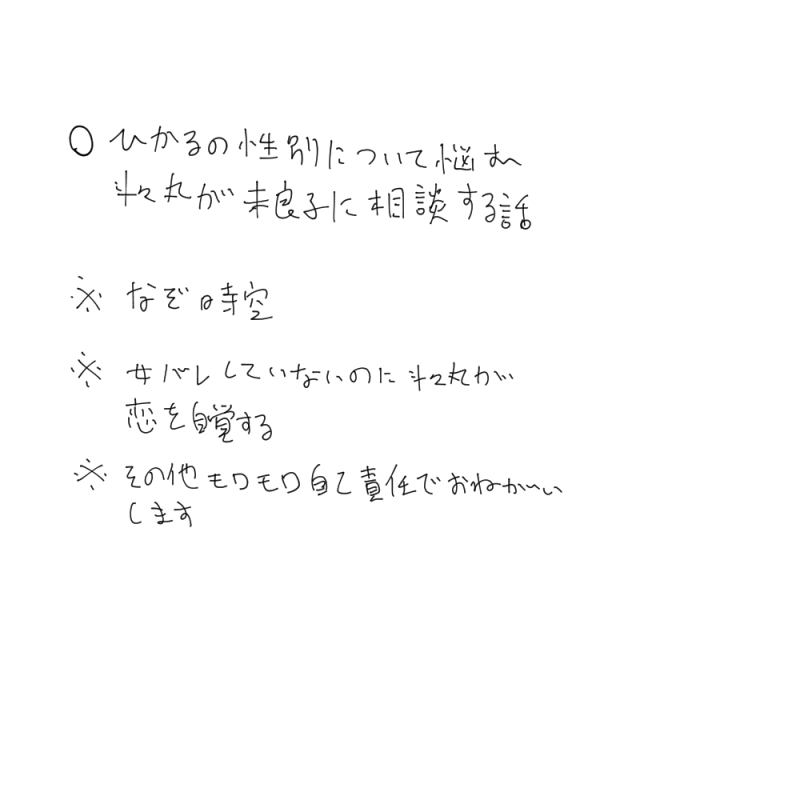 ○ ひかるの性別について悩む
斗々丸が未良子に相談する話
※ なぞ時空
※ 女バレしていないのに斗々丸が
恋を自覚する
※ その他モロモロ自己責任でおねがい
します